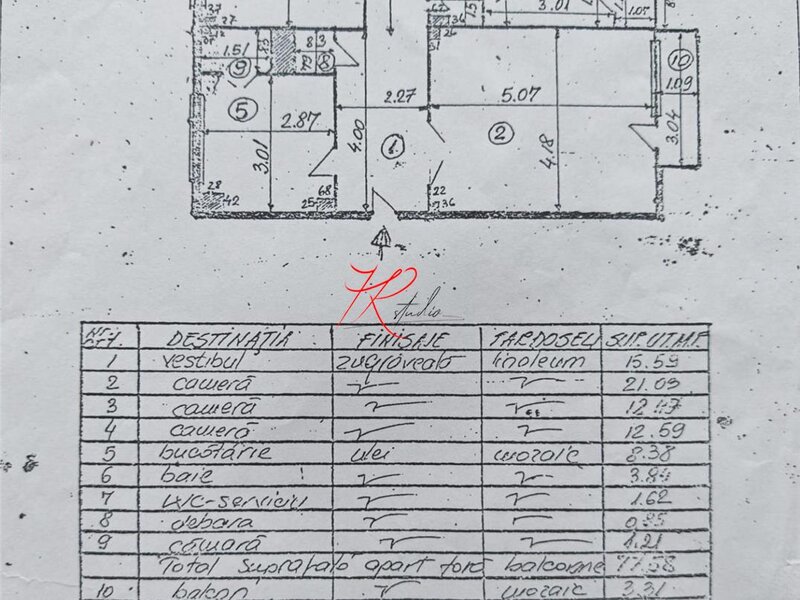 27
3.01
1.07
36
26
1.51
9
8
3
8
10
1.09
5
2.87
2.27
5.07
3.01
4.00
1
2
4.18
3.04
28
42
68
25
22
36
HR studio
DESTINAȚIA FINISAJE PARDOSELI SUP. UT. M.P.
1 vestibul zugrăveală linoleum 15.59
2 cameră 21.09
3 cameră
4 cameră 12.59
5 bucătărie ulei mozaic 8.38
6 baie 3.84
7 WC-serviciu 1.62
8 debara
9 cămară 1.21
Total suprafață apart fără balcoane 77.58
10 balcon mozaic 3.31